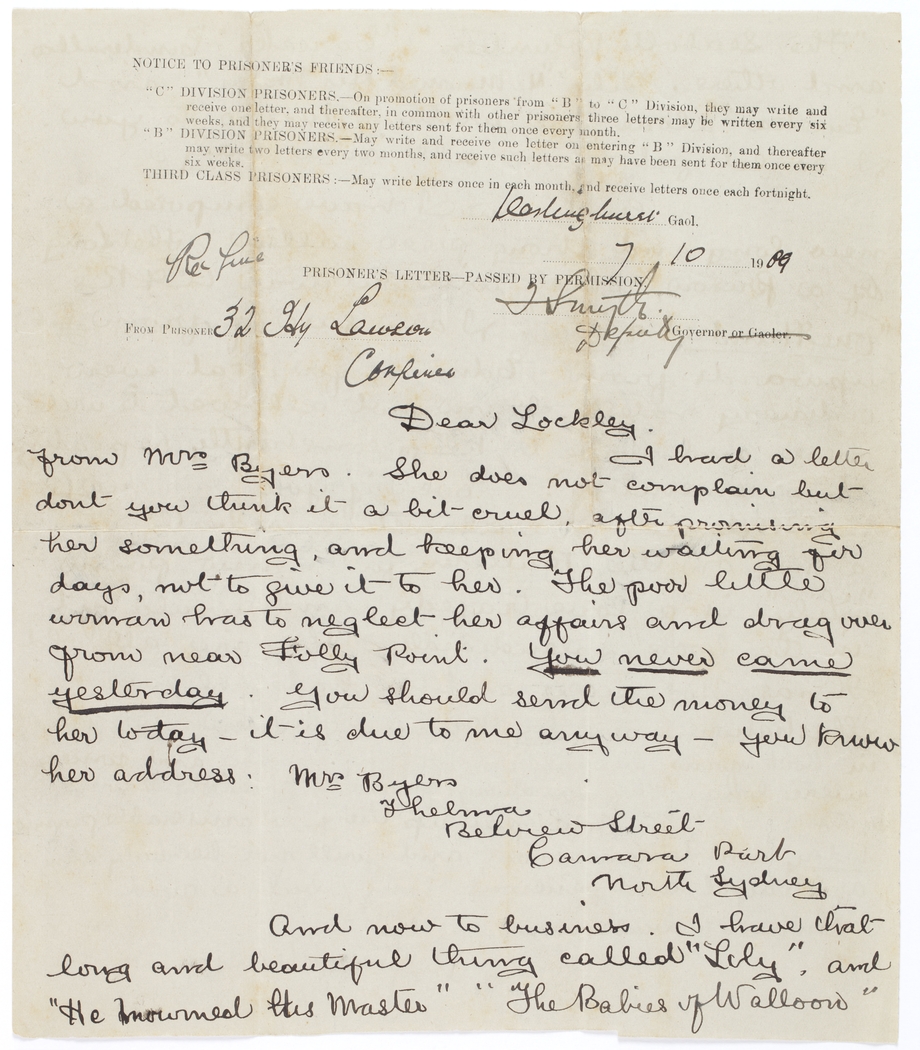 NOTICE TO PRISONER'S FRIENDS:—
"C" DIVISION PRISONERS.—On promotion of prisoners from "B" to "C" Division, they may write and
receive one letter, and thereafter, in common with other prisoners three letters may be written every six
weeks, and they may receive any letters sent for them once every month.
"B" DIVISION PRISONERS.—May write and receive one letter on entering "B" Division, and thereafter
may write two letters every two months, and receive such letters as may have been sent for them once every
six weeks.
THIRD CLASS PRISONERS:—May write letters once in each month, and receive letters once each fortnight.
Darlinghurst Gaol.
7 10 1909
PRISONER'S LETTER—PASSED BY PERMISSION
Smyth
FROM PRISONER 32 Hy Lawson
Deputy Governor or Gaoler.
Confinee
Dear Lockley.
I had a letter
from Mrs Byers. She does not complain but
dont you think it a bit cruel, after promising
her something, and keeping her waiting for
days, not to give it to her. The poor little
woman has to neglect her affairs and drag over
from near Folly Point. You never came
yesterday. You should send the money to
her today – it is due to me anyway – You know
her address: Mrs Byers
Thelma
Belview Street
Park
North Sydney
And now to business. I have that
long and beautiful thing called "Lily", and
"He Mourned His Master" " "The Babies of Walloon"